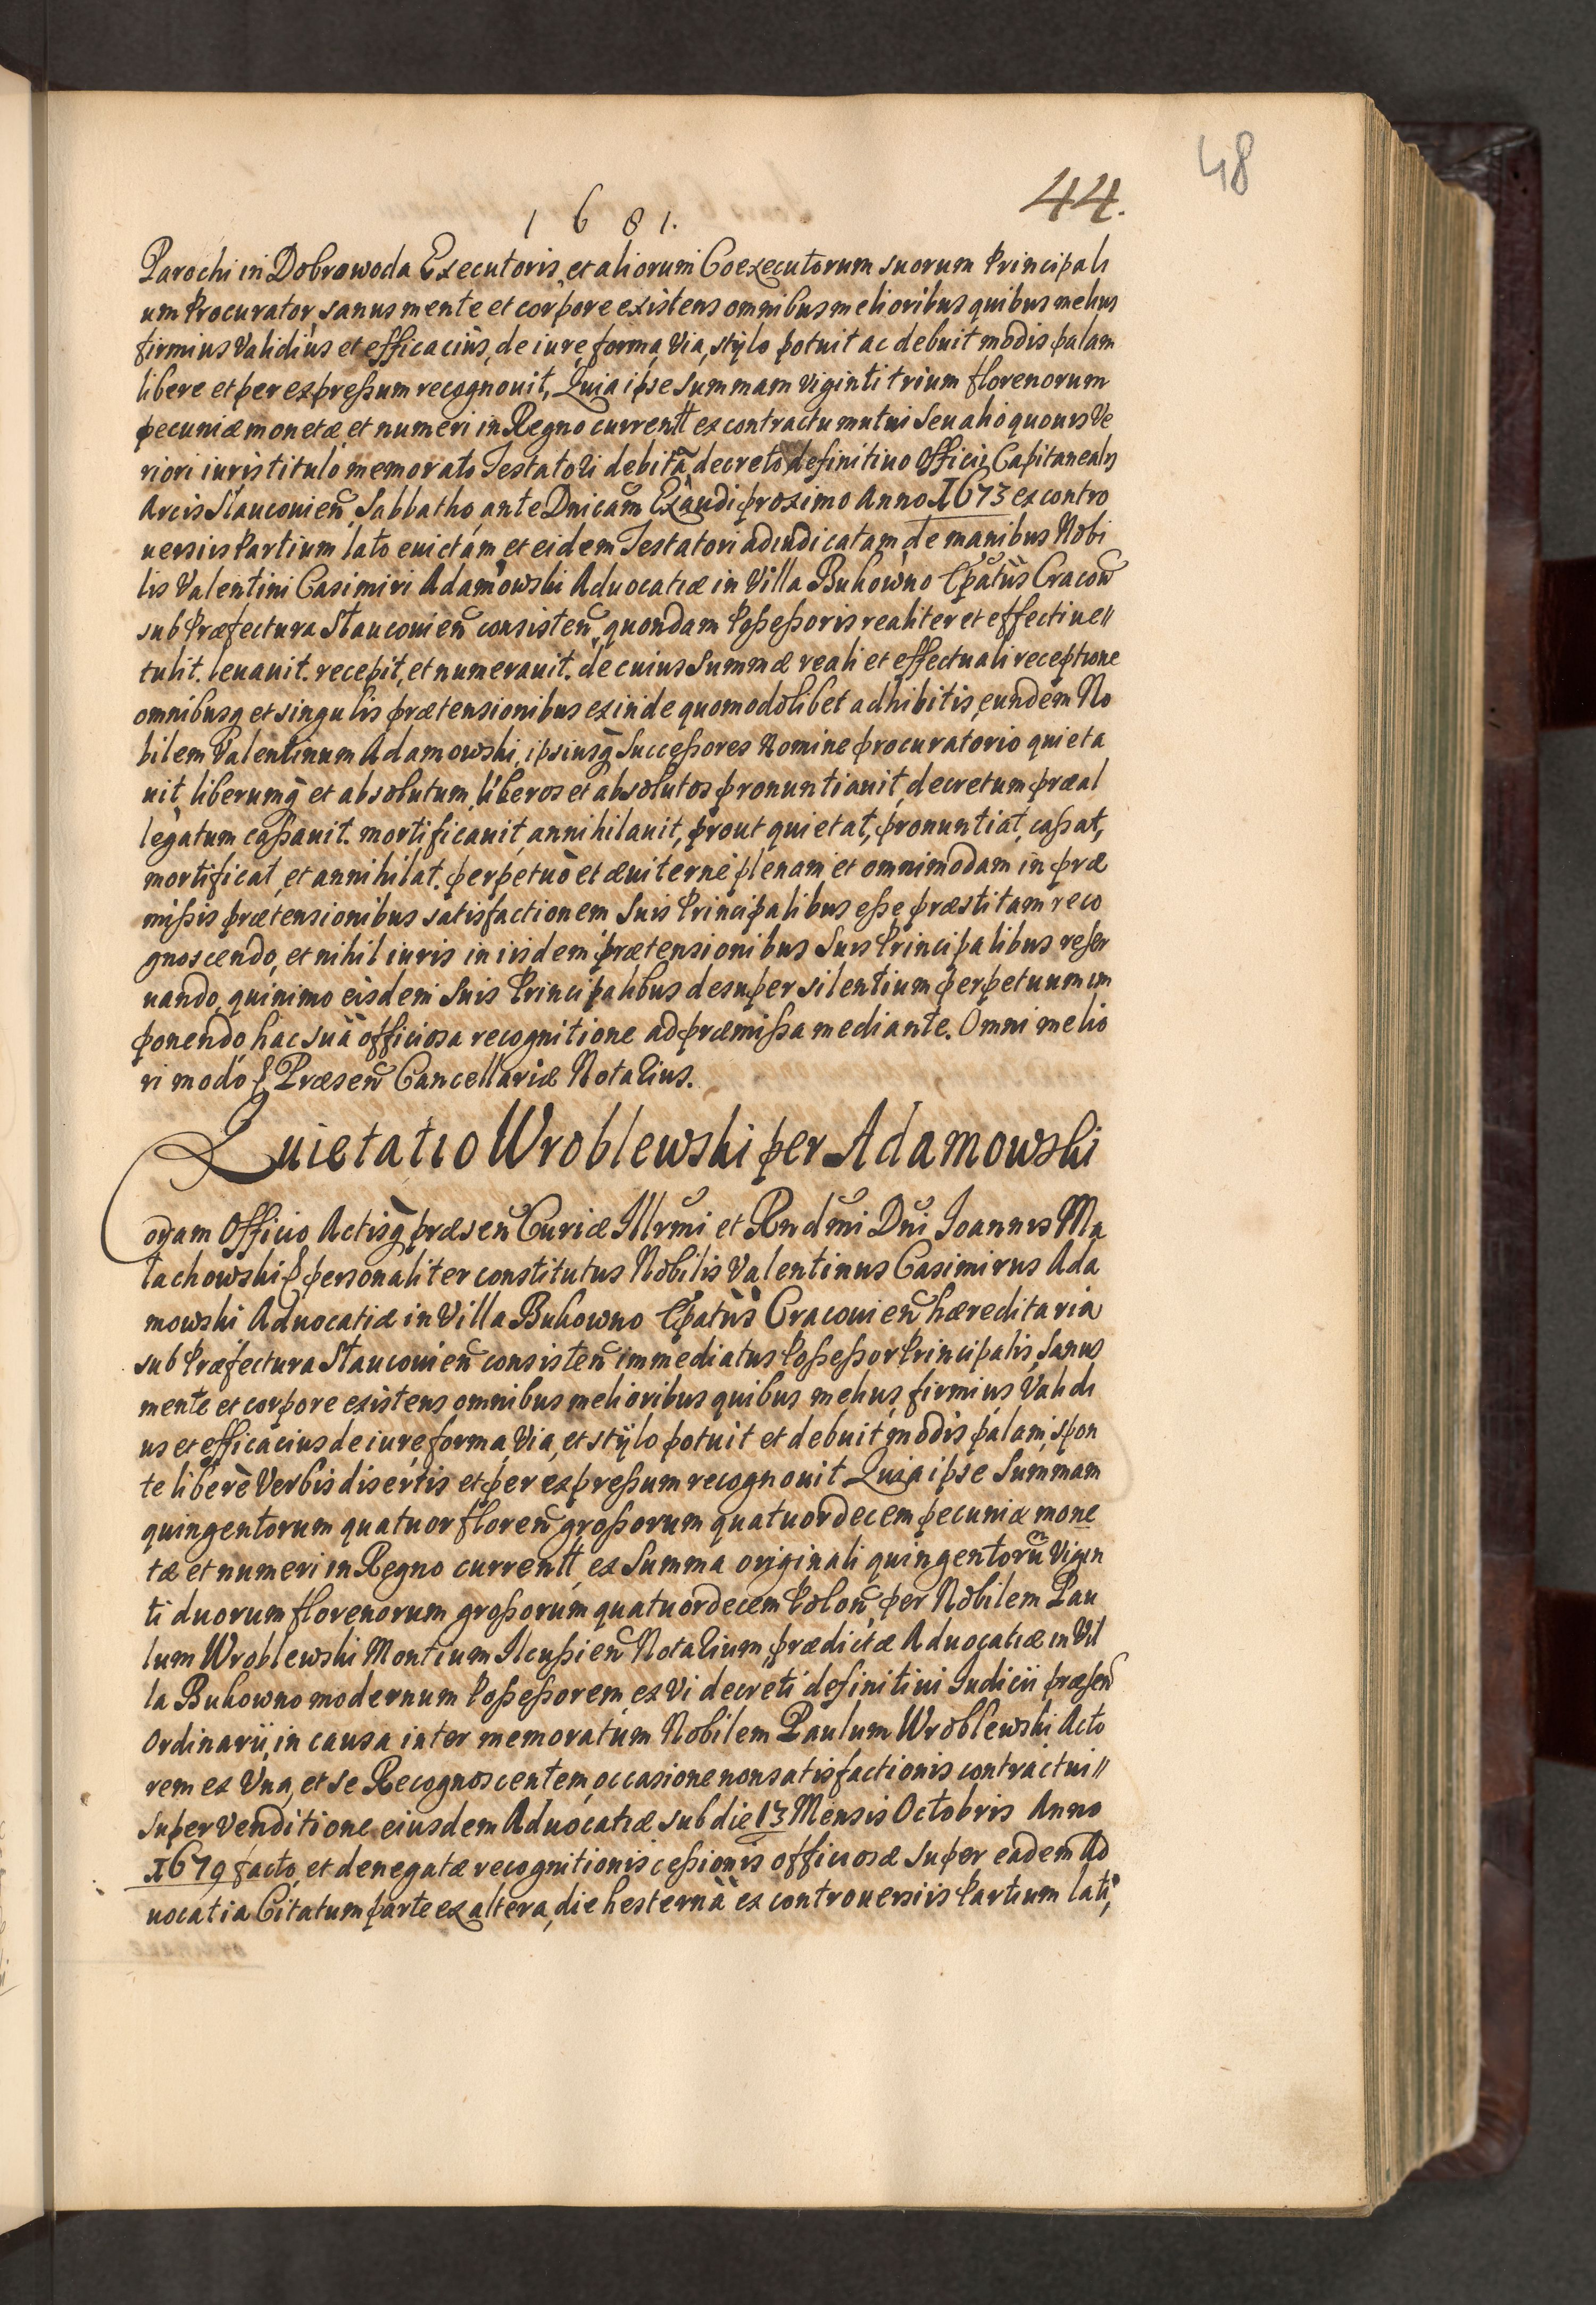 48
44.
1 6 8 1.
Parochi in Dobrowoda Executoris, et aliorum Coexecutorum suorum Principali
um Procurator, sanus mente et corpore existens omnibus melioribus quibus melius
firmius Validius et efficaciùs, de iure, forma, Via, stylo potuit ac debuit modis palam
libere et per expreßum recognouit, Quia ipse Summam viginti trium florenorum
pecuniæ monetæ et numeri in Regno currentt ex contractu mutui Seu alio quouis Ve
riori iuris titulo memorato Testatori debitã decreto definitiuo Officii Capitanealis
Arcis Slauconieñ, Sabbatho ante Dnicam Exaudi proximo Anno 1673 ex contro
uersiis Partium lato euictam et eidem Testatori adiudicatam de manibus Nobi
lis Valentini Casimiri Adamowski Aduocatiæ in Villa Bukowno Epatûs Cracoũ
sub Præfectura Slauconieñ consisteñ, quondam Poßeßoris realiter et effectiue//
tulit. leuauit. recepit, et numerauit. de cuius Summæ reali et effectuali receptione
omnibusq et singulis prætensionibus exinde quomodolibet adhibitis, eundem No
bilem Valentinum Adamowski, ipsiusq Succeßores Nomine procuratorio quieta
uit, liberumq et absolutum, liberos et absolutos pronuntiauit, decretum præal
legatum caßauit. mortificauit, annihilauit, prout quietat, pronuntiat, caßat,
mortificat, et annihilat. perpetuò et æuiternè plenam et omnimodam in præ
mißis prætensionibus satisfactionem Suis Principalibus eße præstitam reco
gnoscendo, et nihil iuris in iisdem prætensionibus Suis Principalibus reser
uando, quinimo eisdem Suis Principalibus desuper silentium perpetuum im
ponendo hac suâ officiosa recognitione ad præmißa mediante. Omni melio
ri modo ꝑ Præseñ Cancellariæ Notarius.
Quietatio Wroblewski per Adamowski
Coram Officio Actisq præseñ Curiæ Illrmi et Rndmi Dni Ioannis Ma
łachowski ꝑ personaliter constitutus Nobilis Valentinus Casimirus Ada
mowski Aduocatiæ in Villa Bukowno Epatûs Cracouieñ hæreditaria
sub Præfectura Slauconieñ consisteñ immediatus Poßeßor Principalis, Sanus
mente et corpore existens omnibus melioribus quibus melius, firmius, Validi
us et efficacius de iure, forma, Via, et stylo potuit et debuit modis palam, spon
te liberè Verbis disertis et per expreßum recognouit Quia ipse Summam
quingentorum quatuor floreñ großorum quatuordecem pecuniæ mone
tæ et numeri in Regno currentt, ex Summa originali quingentorũ Vigin
ti duorum florenorum großorum quatuordecem Poloñ, per Nobilem Pau
lum Wroblewski Montium Ilcußieñ Notarium, prædictæ Aduocatiæ in Vil
la Bukowno modernum Poßeßorem ex Vi decreti definitiui Iudicii præseñ
Ordinarii, in causa inter memoratum Nobilem Paulum Wroblewski Acto
rem ex Vna, et se Recognoscentem, occasione non satisfactionis contractui//
super Venditione eiusdem Aduocatiæ sub die 13 Mensis Octobris Anno
1679 facto, et denegatæ recognitionis ceßionis officiosæ super eadem Ad
uocatia Citatum parte ex altera, die hesternâ ex controuersiis Partium lati,